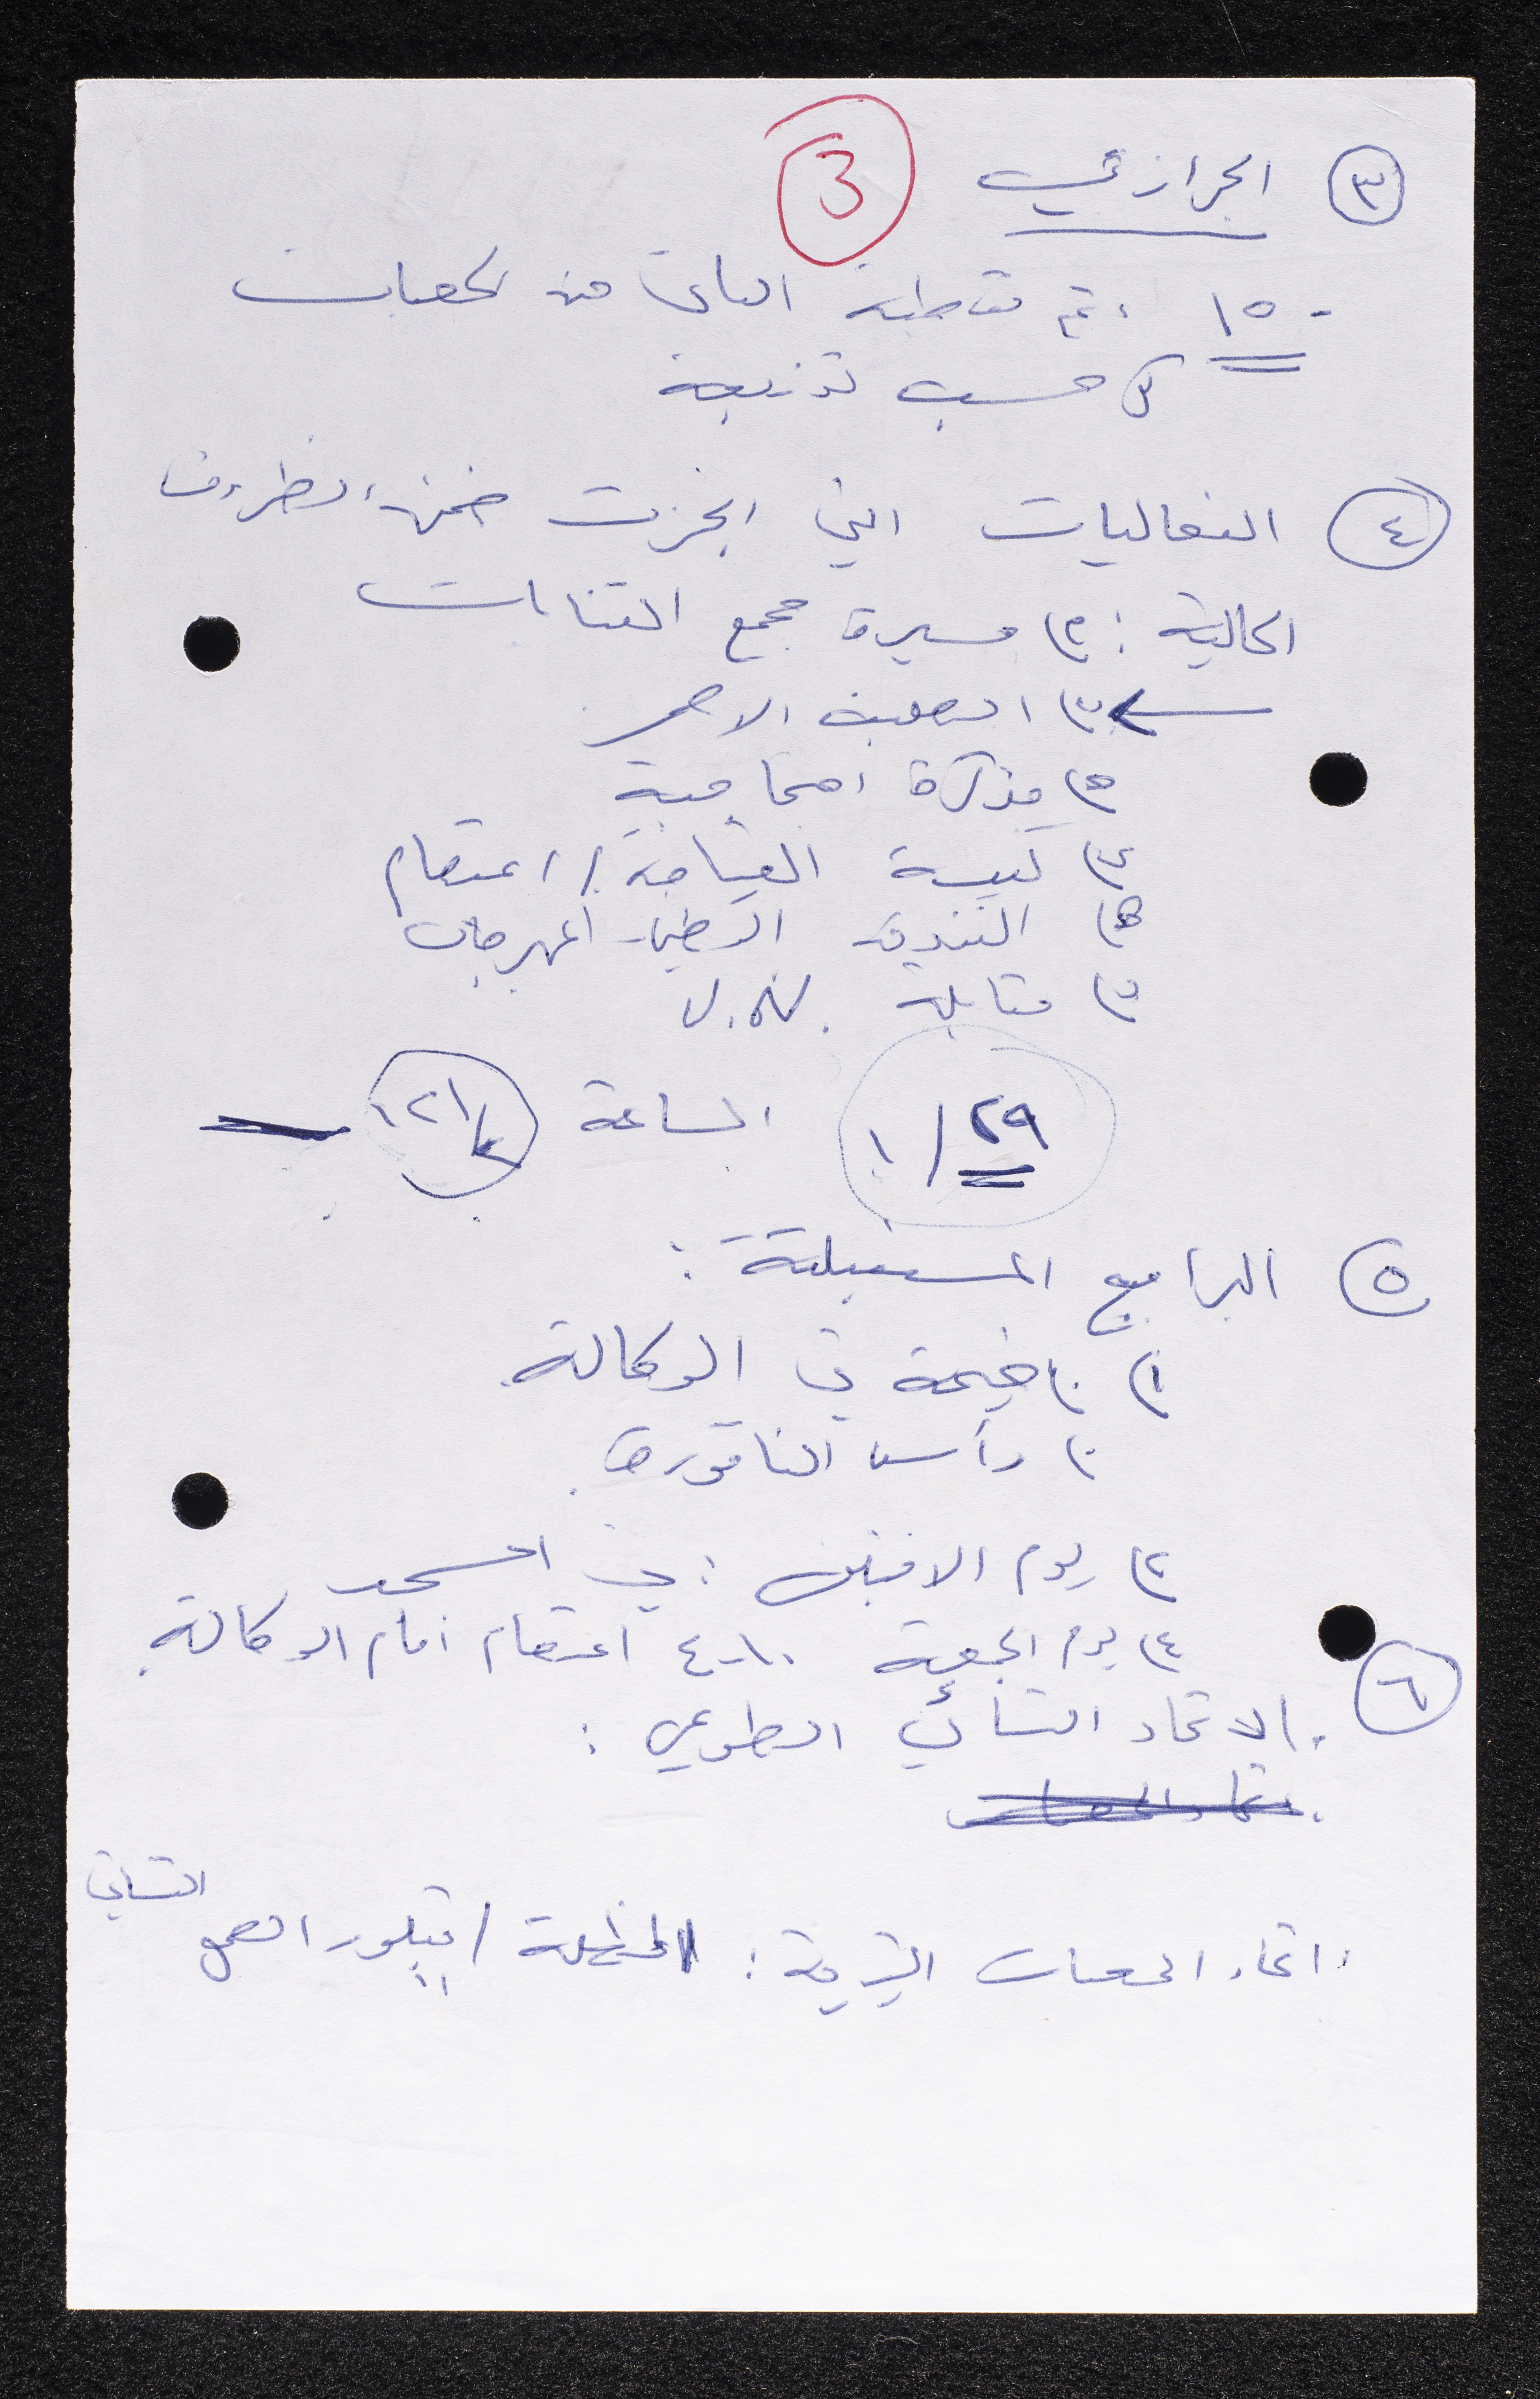 3
٣ الجرازئي
- ١٥ ، تم تغطية الباقي من لجهات
كل حسب توزيعة
٤ الفعاليات التي انجزت ضمن الظروف
الحالية : ١) مسيرة مجمع النقابات
٢) الصليب الاحمر
٣) مذكرة احتجاجية
٤) كنيسة القيامة / اعتصام
٥) الفندق الوطني / مهرجان
٦) مقابلة U.N.
٢٩/١ الساعة ١٢١/٢
٥ البرامج المستقبلية :
١) ١) خيمة في الوكالة
٢) رأس الناقورة
٢) يوم الاثنين : في المسجد
٤) يوم الجمعة ١٠-٤ اعتصام امام الوكالة
٦ . الاتحاد النسائي الطوعي :
. اتحاد الجمعيات الخيرية : المظلة / تبلور العمل النسائي